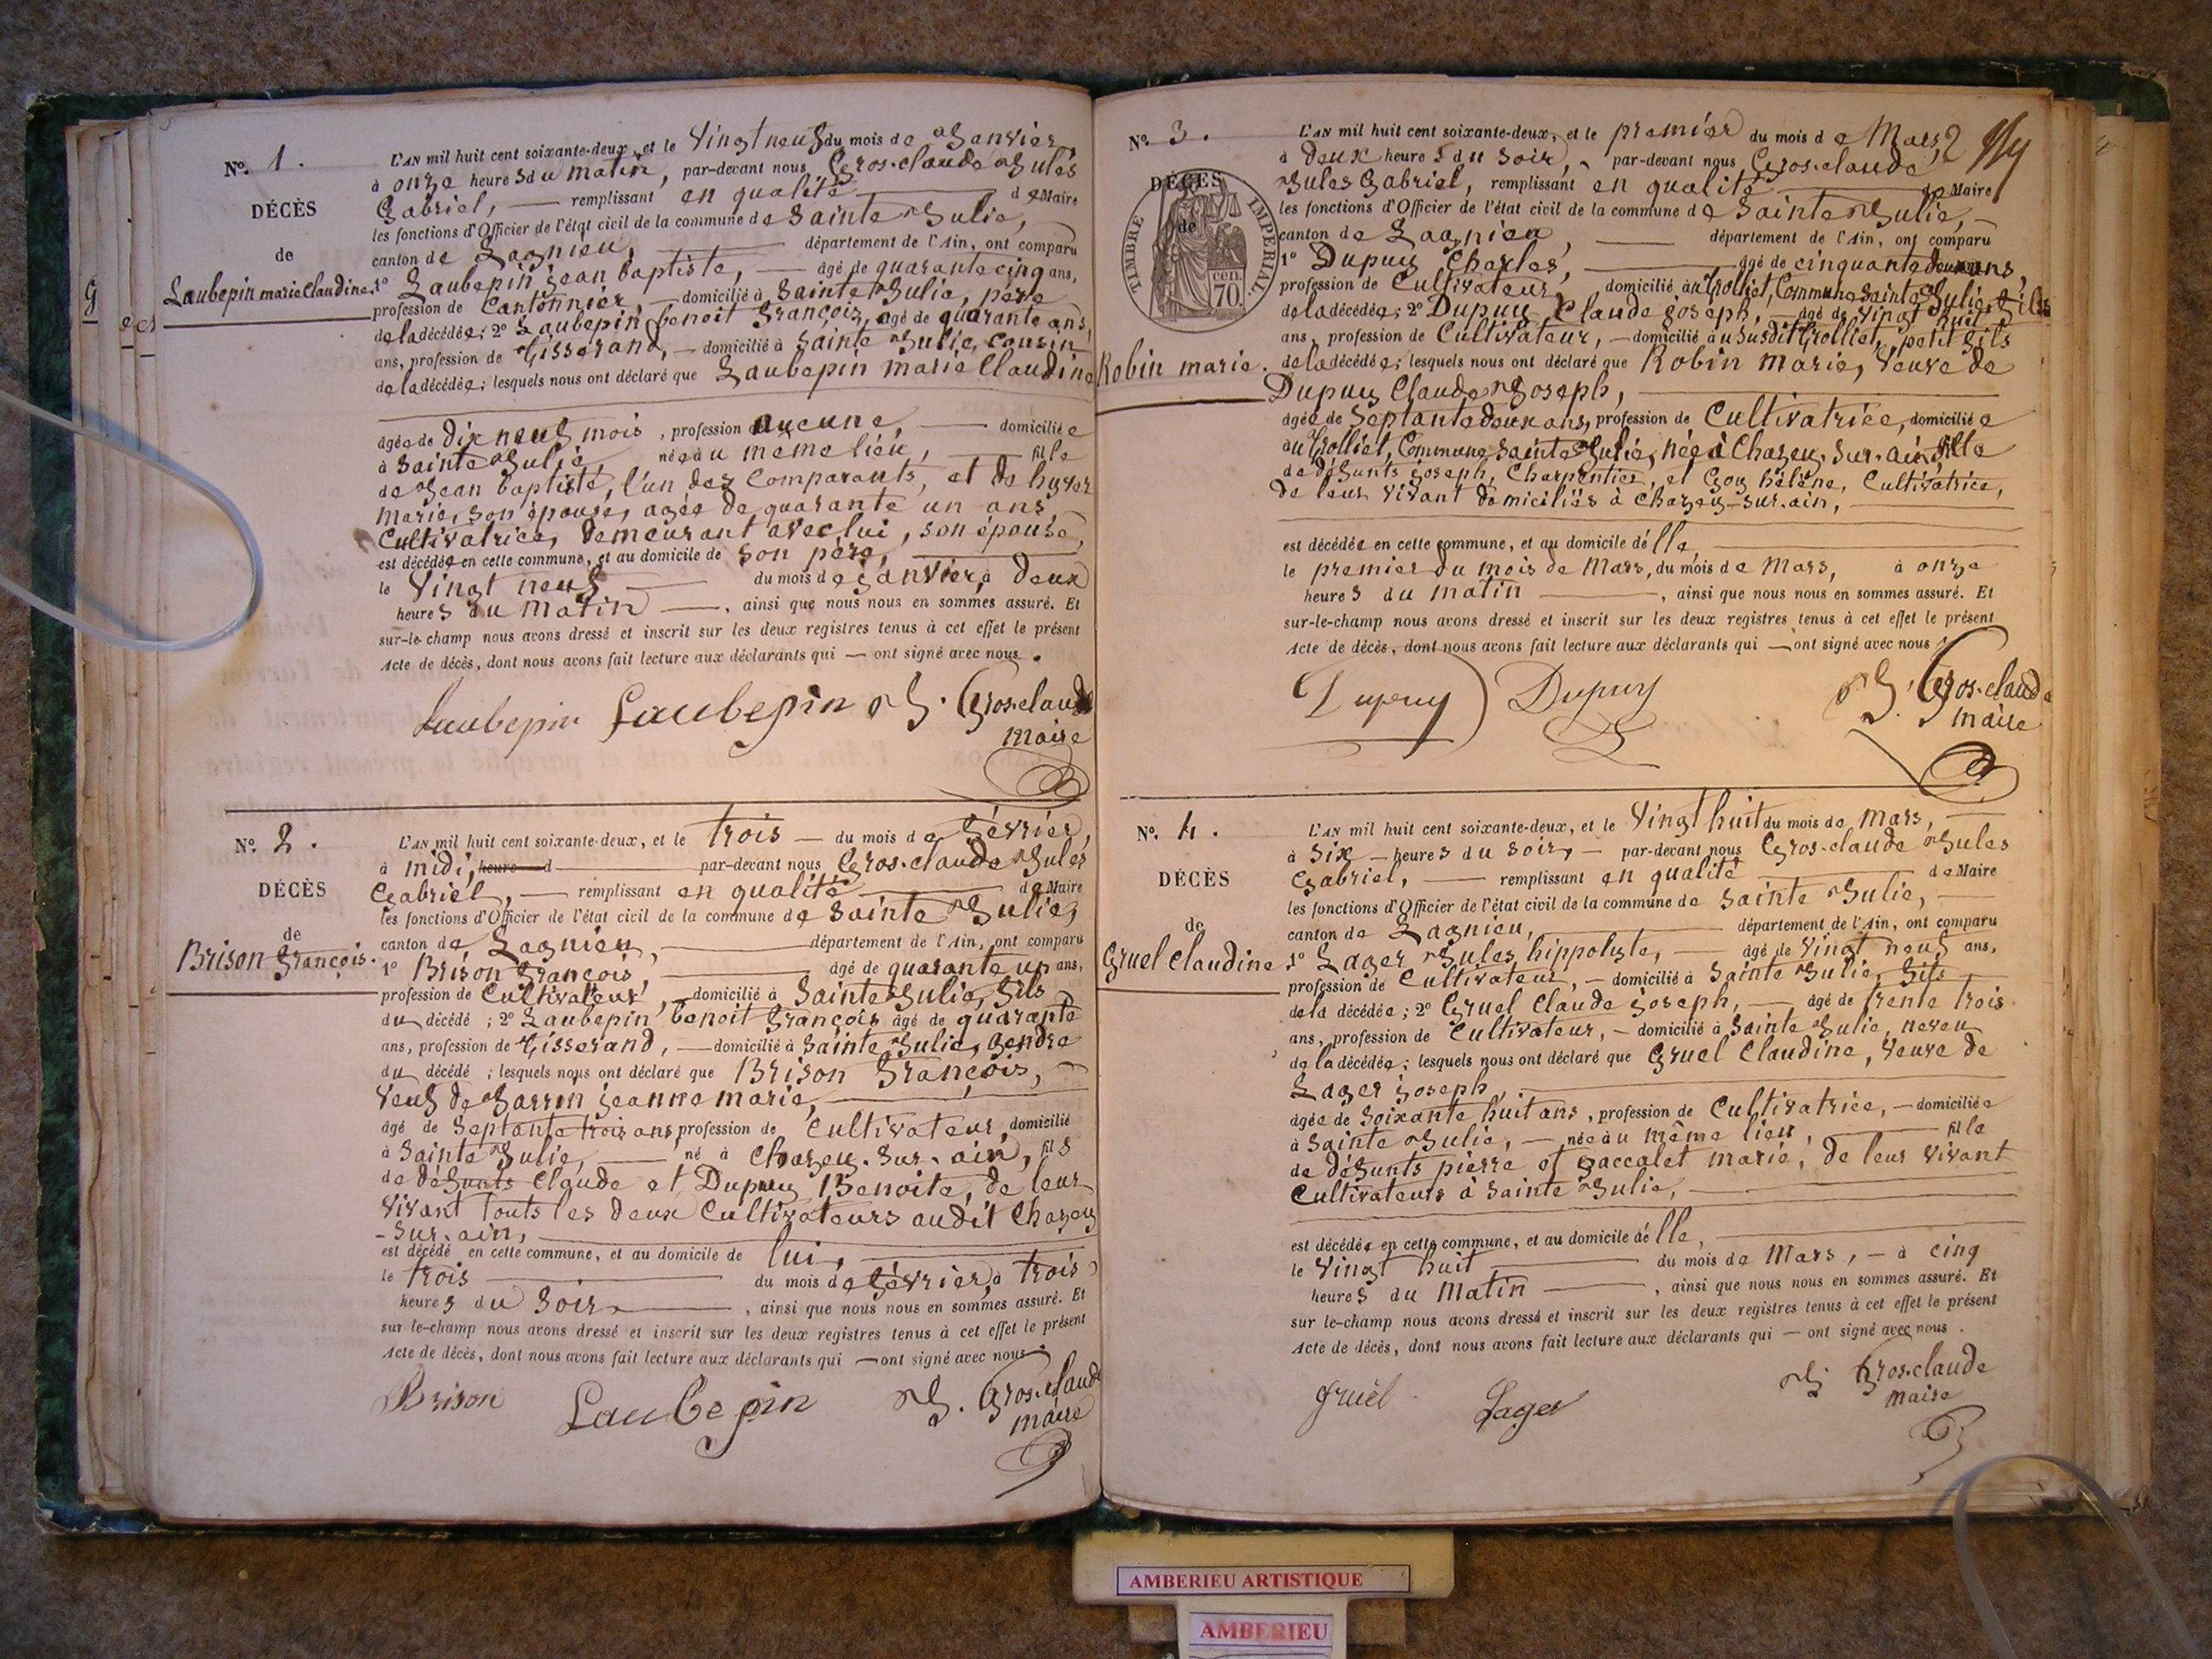 G
N° 1.
DÉCÈS
de
Laubepin marie Claudine.
L'AN mil huit cent soixante-deux, et le Vingt neuf du mois de Janvier,
à onze heures du matin, par-devant nous Gros-claude Jules
Gabriel, — remplissant en qualité — de Maire
les fonctions d'Officier de l'état civil de la commune de Sainte Julie,
canton de Lagnieu, — département de l'Ain, ont comparu
1° Laubepin jean baptiste, — âgé de quarante cinq ans,
profession de Cantonnier, — domicilié à Sainte Julie, père
de la décédée; 2° Laubepin benoit françois, agé de quarante ans,
ans, profession de Tisserand, — domicilié à Sainte Julie, cousin
de la décédée; lesquels nous ont déclaré que Laubepin marie Claudine
âgée de dix neuf mois, profession aucune, — domiciliée
à Sainte Julie née au meme lieu, — fille
de Jean baptiste, l'un des Comparants, et de
marie, son épouse, agée de quarante un ans,
Cultivatrice, demeurant avec lui, son épouse,
est décédée en cette commune, et au domicile de son père,
le Vingt neuf — du mois de janvier, à deux
heures du matin —, ainsi que nous nous en sommes assuré. Et
sur-le-champ nous avons dressé et inscrit sur les deux registres tenus à cet effet le présent
Acte de décès, dont nous avons fait lecture aux déclarants qui — ont signé avec nous.
Laubepin Laubepin J. Gros-claude
maire
N° 2.
DÉCÈS
de
Brison françois.
L'AN mil huit cent soixante-deux, et le trois — du mois de février,
à midi, heure d — par-devant nous Gros-claude Jules
Gabriel, — remplissant en qualité — de Maire
les fonctions d'Officier de l'état civil de la commune de Sainte Julie,
canton de Lagnieu, — département de l'Ain, ont comparu
1° Brison françois, — âgé de quarante un ans,
profession de Cultivateur, — domicilié à Sainte Julie, fils
du décédé; 2° Laubepin benoit françois âgé de quarante
ans, profession de Tisserand, — domicilié à Sainte Julie, gendre
du décédé; lesquels nous ont déclaré que Brison françois,
veuf de jeanne marie,
âgé de Septante trois ans, profession de Cultivateur, domicilié
à Sainte Julie, — né à Chazey-sur-ain, fils
de défunts Claude et Dupuy Benoite, de leur
vivant touts les deux Cultivateurs audit Chazey
-sur-ain,
est décédé en cette commune, et au domicile de lui,
le trois — du mois de février, à trois
heures du Soir —, ainsi que nous nous en sommes assuré. Et
sur le-champ nous avons dressé et inscrit sur les deux registres tenus à cet effet le présent
Acte de décès, dont nous avons fait lecture aux déclarants qui — ont signé avec nous
Brison Laubepin J. Gros-claude
maire
N° 3.
DÉCÈS
de
TIMBRE IMPERIAL.
70 cen.
Robin marie.
L'AN mil huit cent soixante-deux, et le premier du mois de Mars, 2
à deux heures du soir, — par-devant nous Gros-claude
Jules Gabriel, remplissant en qualité — de Maire
les fonctions d'Officier de l'état civil de la commune de Sainte Julie,
canton de Lagnieu, — département de l'Ain, ont comparu
1° Dupuy Charles, — âgé de cinquante deux ans,
profession de Cultivateur, domicilié au Trolliet, Commune Sainte Julie, fils
de la décédée; 2° Dupuy Claude joseph, — âgé de vingt huit
ans, profession de Cultivateur, — domicilié au susdit Trolliet, petit fils
de la décédée; lesquels nous ont déclaré que Robin marie, veuve de
Dupuy Claude Joseph,
âgée de Septante deux ans, profession de Cultivatrice, domiciliée
au Trolliet, Commune Sainte Julie, née à Chazey-sur-ain, fille
de défunts joseph, Charpentier, et Goy hélène, Cultivatrice,
de leur vivant domiciliés à Chazey-sur-ain,
est décédée en cette commune, et au domicile d'elle,
le premier du mois de Mars, du mois de Mars, à onze
heures du matin —, ainsi que nous nous en sommes assuré. Et
sur-le-champ nous avons dressé et inscrit sur les deux registres tenus à cet effet le présent
Acte de décès, dont nous avons fait lecture aux déclarants qui — ont signé avec nous
Dupuy Dupuy J. Gros-claude
maire
N° 4.
DÉCÈS
de
Gruel Claudine
L'AN mil huit cent soixante-deux, et le Vingt huit du mois de mars,
à six — heures du soir, — par-devant nous Gros-claude Jules
Gabriel, — remplissant en qualité — de Maire
les fonctions d'Officier de l'état civil de la commune de Sainte Julie,
canton de Lagnieu, — département de l'Ain, ont comparu
1° Lager Jules hippolyte, — âgé de vingt neuf ans,
profession de Cultivateur, — domicilié à Sainte Julie, fils
de la décédée; 2° Gruel Claude joseph, — âgé de trente trois
ans, profession de Cultivateur, — domicilié à Sainte Julie, neveu
de la décédée; lesquels nous ont déclaré que Gruel Claudine, veuve de
Lager joseph,
âgée de Soixante huit ans, profession de Cultivatrice, — domiciliée
à Sainte Julie, — née au même lieu, — fille
de défunts pierre et marie, de leur vivant
Cultivateurs à Sainte Julie,
est décédée en cette commune, et au domicile d'elle,
le Vingt huit — du mois de Mars, — à cinq
heures du Matin —, ainsi que nous nous en sommes assuré. Et
sur le-champ nous avons dressé et inscrit sur les deux registres tenus à cet effet le présent
Acte de décès, dont nous avons fait lecture aux déclarants qui — ont signé avec nous.
Gruel Lager J. Gros-claude
maire
AMBERIEU ARTISTIQUE
AMBERIEU